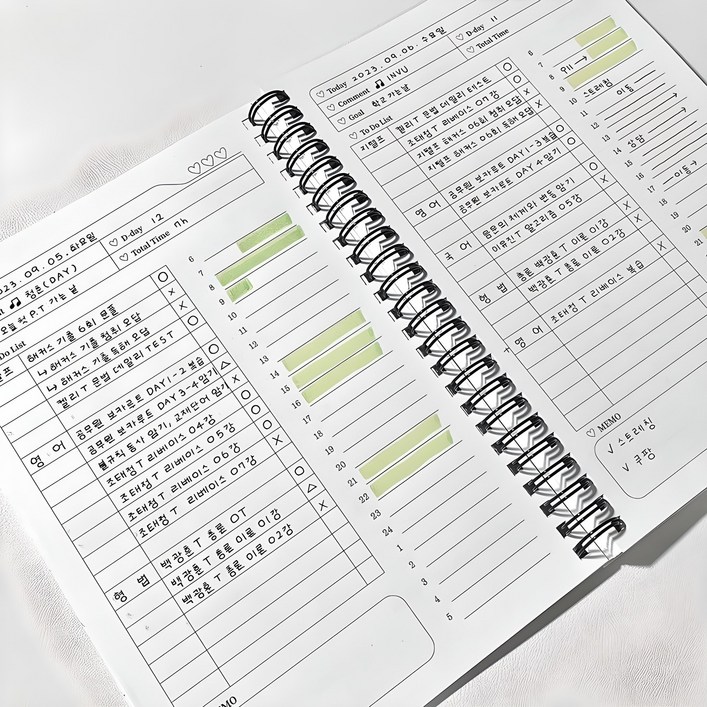 2023. 09. 05. 화요일
D-day 12
청춘(DAY)
Total Time 7h
오늘 첫 P.T 가는 날
To Do List
해커스 기출 6회 모플
↳ 해커스 기출 청취 오답
↳ 해커스 기출 독해 오답
켈리T 문법 데일리 TEST
영어
공무원 보카루트 DAY1-2 복습
공무원 보카루트 DAY 3-4 암기
불규칙 동사 암기, 교재단어 암기
조태정T 리베이스 04강
조태정T 리베이스 05강
조태정T 리베이스 06강
조태정T 리베이스 07강
형법
백광훈T 총론 OT
백광훈T 총론 이론 01강
백광훈T 총론 이론 02강
6
7
8
9
10
11
12
13
14
15
16
17
18
19
20
21
22
23
24
1
2
3
4
5
MEMO
Today 2023. 09. 06. 수요일
D-day 11
Comment INVU
Total Time
Goal 학교가는날
To Do List
지텔프
켈리T 문법 데일리 테스트
조태정T 리베이스 07강
지텔프 해커스 06회 청취 오답
지텔프 해커스 06회 독해 오답
영어
공무원 보카루트 DAY 1-3 복습
공무원 보카루트 DAY 4 암기
국어
음운의 체계와 변동 암기
이유진T 알고리즘 05강
형법
총론 백광훈T 이론 01강
백광훈T 총론 이론 02강
영어
조태정T 리베이스 복습
6
7
8
9
10 스트레칭
11 이동
12
13
14 상담
15
16
17 이동
18
19
20
21
MEMO
✓ 스트레칭
✓ 쿠팡